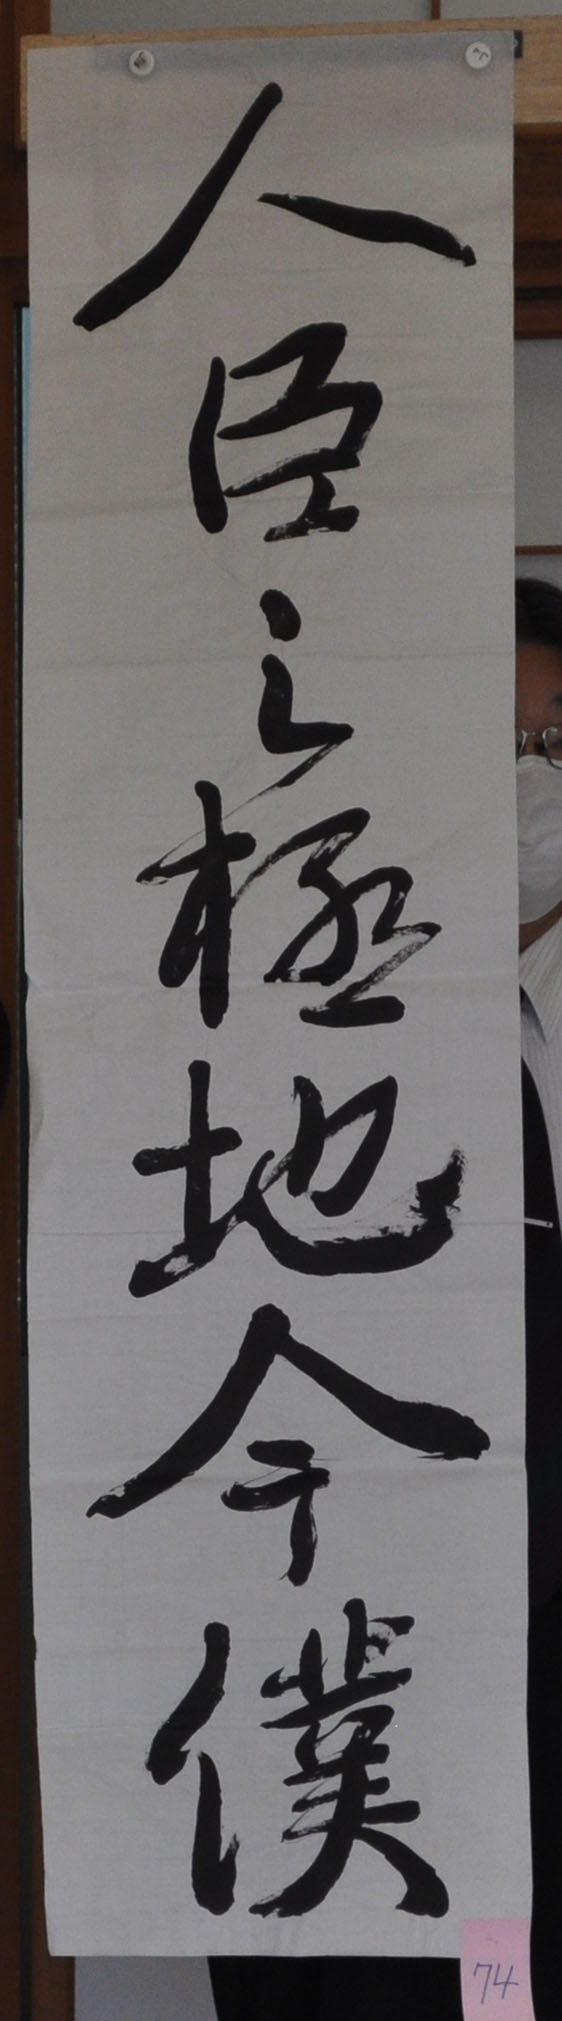 人臣之極地今僕
74